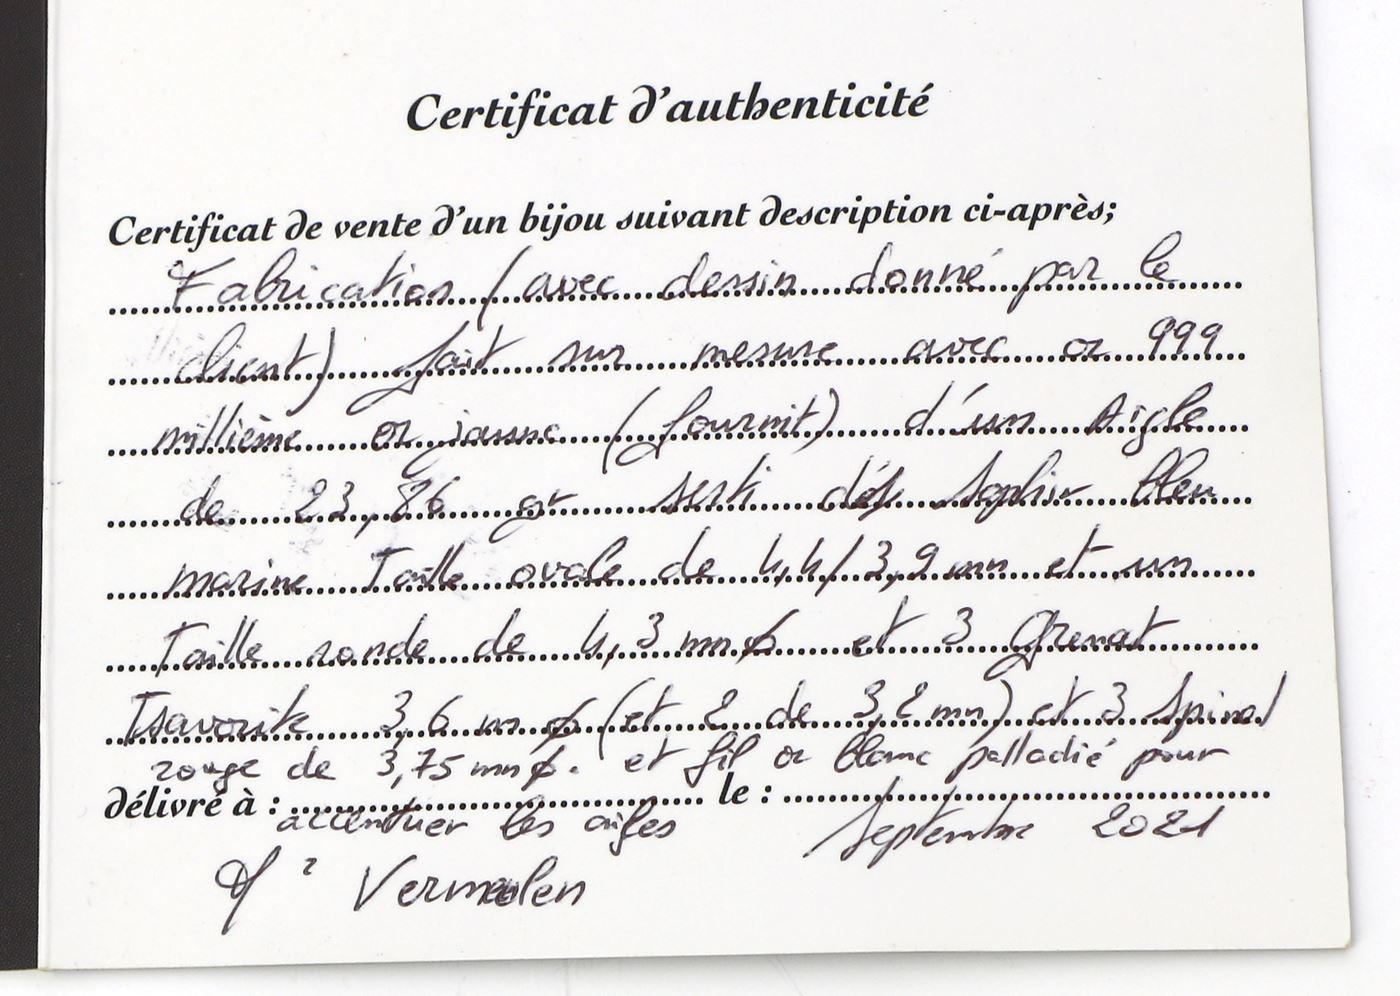 Certificat d'authenticité
Certificat de vente d'un bijou suivant description ci-après;
Fabrication (avec dessin donné par le
client) fait sur mesure avec or 999
millième or jaune (fournit) d'un Aigle
de 23,86 gr serti de saphir bleu
marine Taille ovale de 4,4/3,9 mm et un
Taille ronde de 4,3 mm ø et 3 Grenat
Tsavorite 3,6 mm ø (et 2 de 3,2 mm) et 3 Spinel
rouge de 3,75 mm ø. et fil or blanc palladié pour
délivré à : le :
accentuer les ailes Septembre 2021
Vermeulen